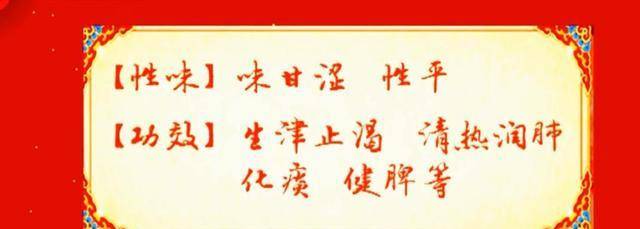 【性味】味甘涩 性平
【功效】生津止渴 清热润肺
化痰 健脾等